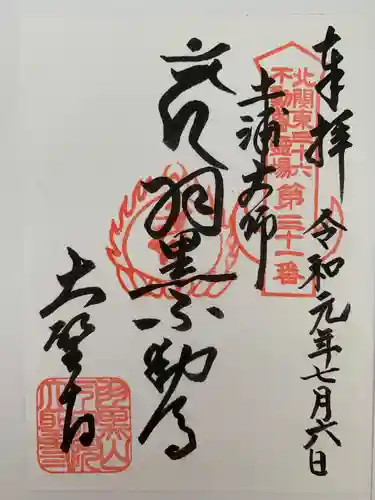 奉拝 令和元年七月六日
北関東三十六
不動尊霊場第三十一番
土浦大師
羽黒不動尊
大聖寺
羽黒山
大聖寺